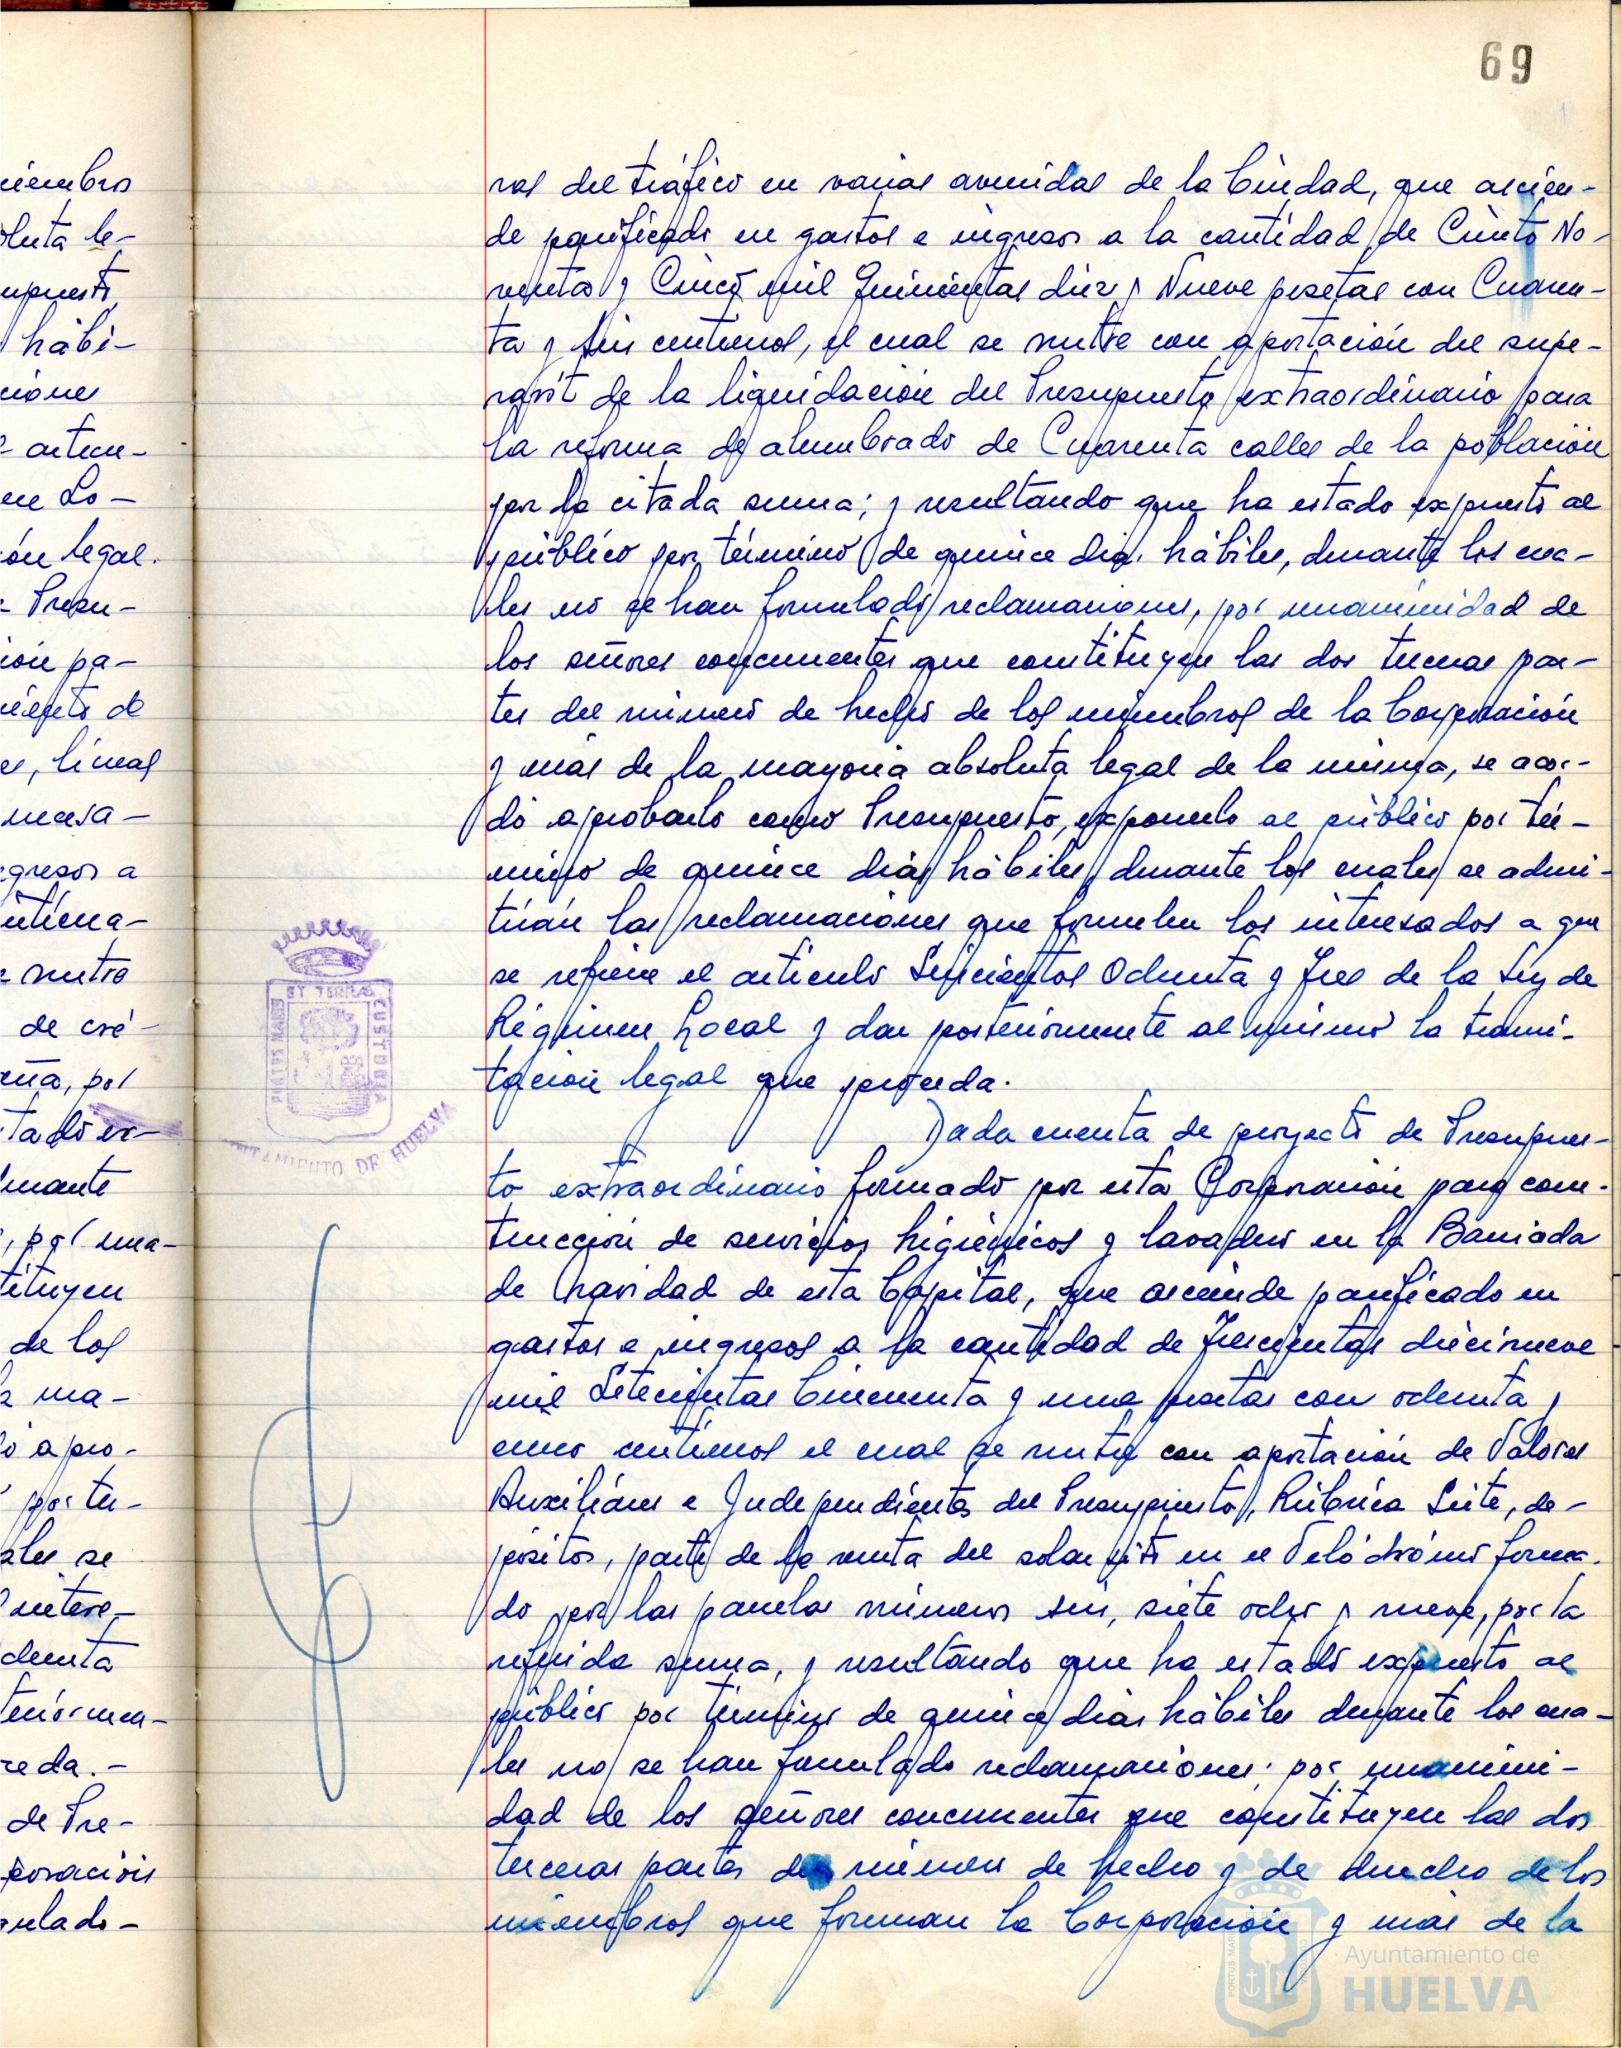 69
niembros
oluta le-
upuesto,
hábi-
ciones
artícu-
Lo-
ón legal.
Presu-
ión pa-
miento de
, lineal
necesa-
gresos a
nutre
de cré-
aña, por
tado ex-
durante
, por una-
tituyen
de los
ma-
apro-
por tér-
ales se
intere-
chenta
teriormen-
ceda.-
de Pre-
poración
ras del tráfico en varias avenidas de la Ciudad, que ascien-
de panificado en gastos e ingresos a la cantidad de Ciento No-
venta y Cinco mil Quinientas diez y Nueve pesetas con Cuaren-
ta y Seis centimos, el cual se nutre con aportación del supe-
ravit de la liquidación del Presupuesto extraordinario para
la reforma de alumbrado de Cuarenta calles de la población
por la citada suma; y resultando que ha estado expuesto al
público por término de quince dias hábiles, durante los cua-
les no se han formulado reclamaciones, por unanimidad de
los señores concurrentes que constituyen las dos terceras par-
tes del número de hecho de los miembros de la Corporación
y más de la mayoria absoluta legal de la misma, se acor-
dó aprobarlo como Presupuesto, exponerlo al público por tér-
mino de quince dias hábiles, durante los cuales se admi-
tirán las reclamaciones que formulen los interesados a que
se refiere el articulo Seiscientos Ochenta y Tres de la Ley de
Régimen Local y dar posteriormente al mismo la trami-
tación legal que proceda.
Dada cuenta de proyecto de Presupues-
to extraordinario formado por esta Corporación para cons-
trucción de servicios higiénicos y lavaderos en la Barriada
de Navidad de esta Capital, que asciende panificado en
gastos e ingresos a la cantidad de Trescientas diecinueve
mil Setecientas Cincuenta y una pesetas con ochenta y
cinco centimos el cual se nutre con aportación de Valores
Auxiliares e Independientes del Presupuesto, Rúbrica Siete, de-
pósitos, parte de la venta del solar sito en el Velódromo forma-
do por las parcelas números seis, siete ocho y nueve, por la
referida suma, y resultando que ha estado expuesto al
público por término de quince dias hábiles durante los cua-
les no se han formulado reclamaciones; por unanimi-
dad de los señores concurrentes que constituyen las dos
terceras partes del número de hecho y de derecho de los
miembros que forman la Corporación y más de la
PORTUS MARIS ET TERRAS CUSTODIA
AYUNTAMIENTO DE HUELVA
Ayuntamiento de
HUELVA